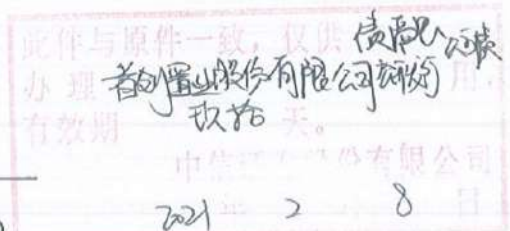 此件与原件一致，仅供
办理首创置业股份有限公司 用，
有效期玖拾天。
中信证券股份有限公司
2021年2 8日